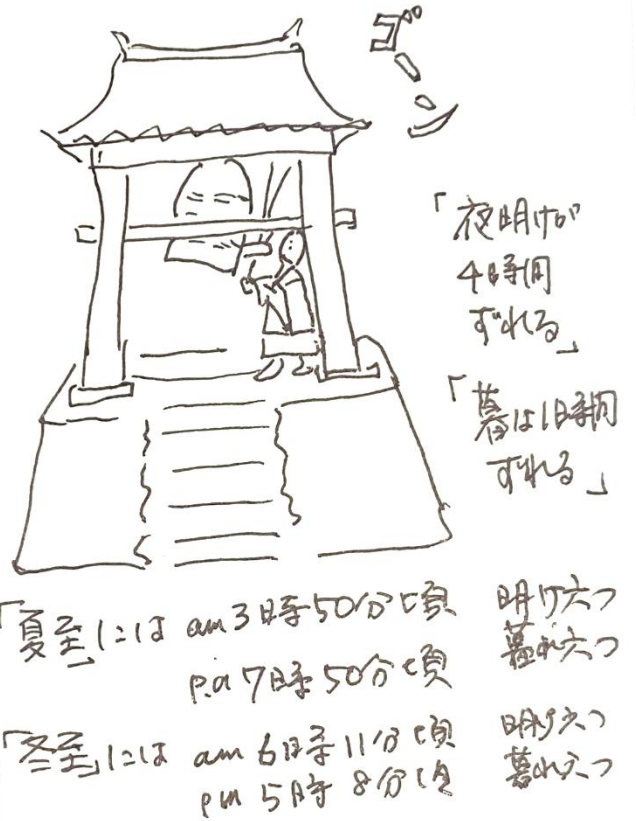 ゴーン
「夜明けが
4時間
ずれる」
「暮は1時間
ずれる」
「夏至」には am3時50分頃 明け六つ
p.m7時50分頃 暮れ六つ
「冬至」には am6時11分頃 明け六つ
pm5時8分頃 暮れ六つ